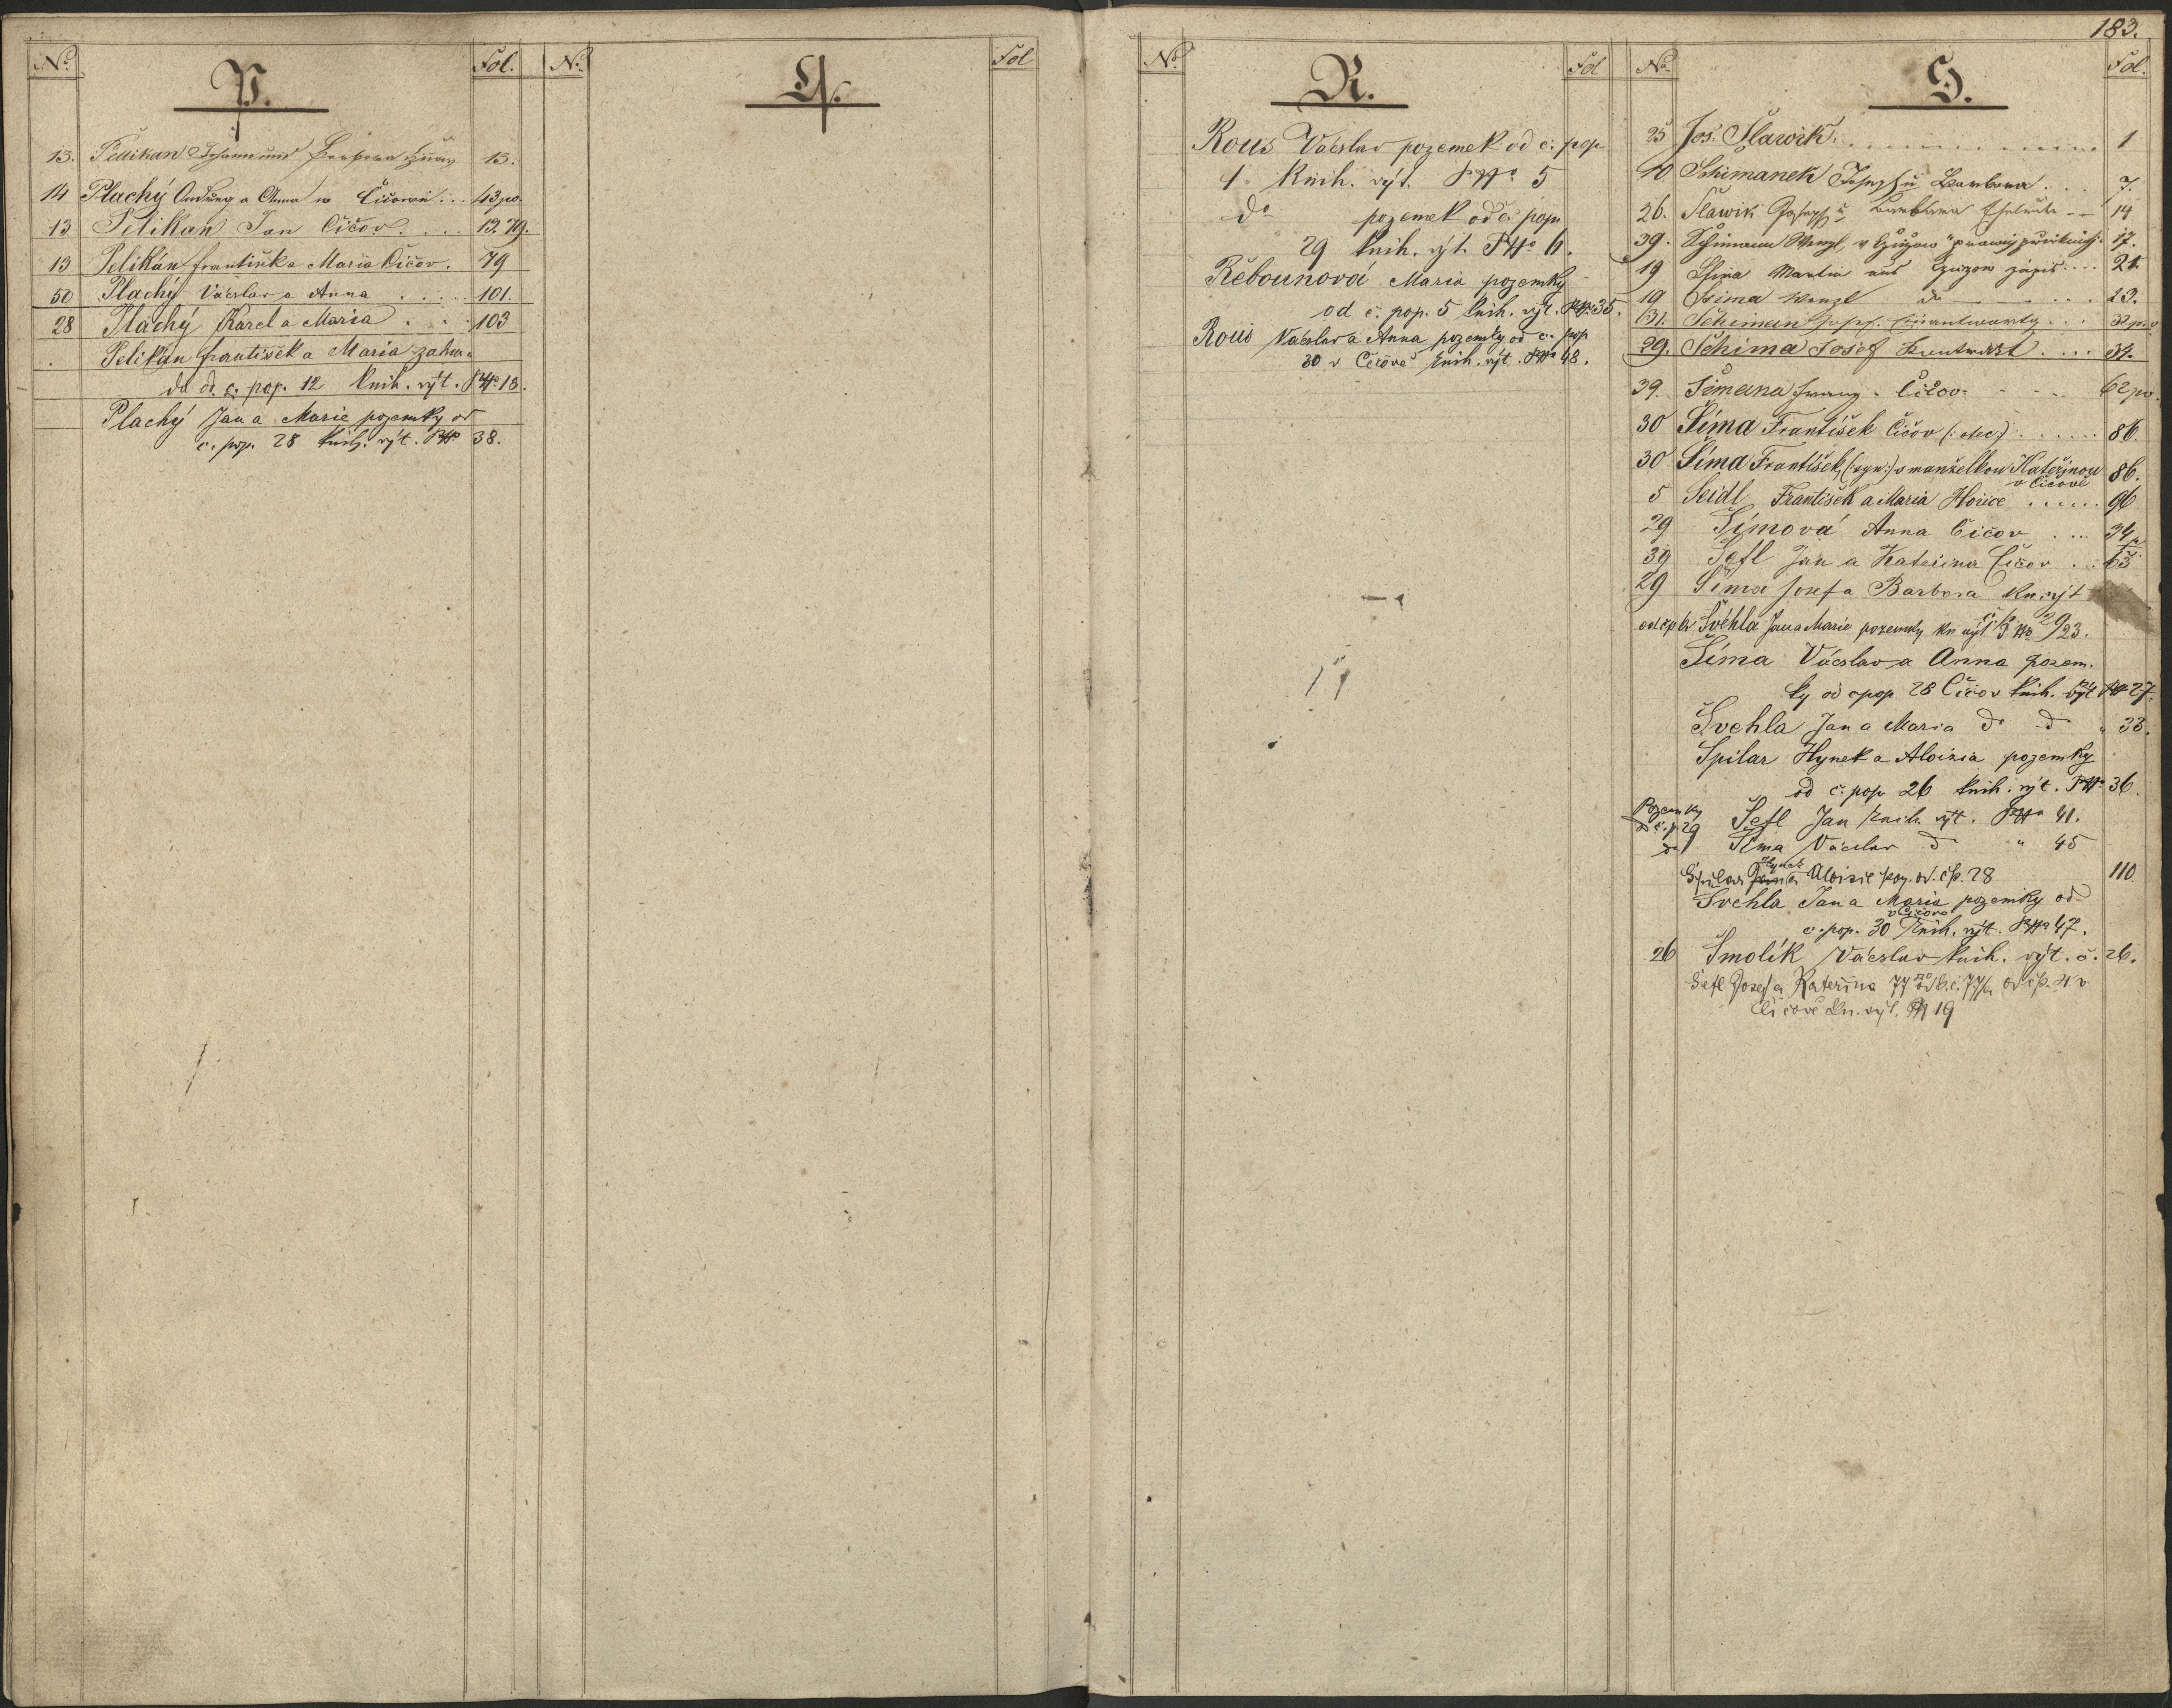 No. P. Fol.
13. Pelikan Johann und Barbara 13.
14 Plachý Ondřeg a Anna w Čičowě ... 43 po.
13 Pelikan Jan Čičov. ... 13. 79.
13 Pelikán František a Maria Čičov. 79
50 Plachý Vácslav a Anna ..... 101.
28 Plachý Karel a Maria ... 103
Pelikán František a Maria zahra=
da od č. pop. 12 knih. výt. No. 13.
Plachý Jan a Marie pozemky od
č. pop. 28 knih. výt. 38.
No. Q. Fol
No. R. Fol
Rous Vácslav pozemek od č. pop
1 knih. výt. 5
do pozemek od č. pop.
29 knih. výt. 6.
Řebounová Maria pozemky
od č. pop. 5 knih. výt. 35.
Rous Vácslav a Anna pozemky od č. pop.
30 v Čičově knih. výt. 48.
183.
No. S. Fol.
25 Jos. Slawik ..... 1
10 Schimanek Joseph u Barbara ... 7.
26. Slawik Joseph u Barbara -- 14
39. Wenzl 17.
19 Martin aus 21.
19 Wenzl do 23.
31. Schiman Josef 32 p.v
29. Schima Josef .... 34.
39. Simana Franz Čičov 62 po.
30 Šíma František Čičov (: otec :) ...... 86.
30 Šíma František (: syn :) s manželkou Kateřinou
v Čičově 86.
5 Seidl František a Maria Hořice ..... 96
29 Šímová Anna Čičov ... 34 p.
39 Šefl Jan a Kateřina Čičov ... 63
29 Šíma Josef a Barbora kn. výt
od čp Švehla Jan a Marie pozemky kn výt 23.
Šíma Vácslav a Anna pozem.
ky od čpop 28 Čičov knih. výt 27.
Švehla Jan a Maria do do " 33.
Spilar Hynek a Aloisia pozemky
od č. pop. 26 knih. výt. 36.
Pozemky
od č. p. 29 Šefl Jan knih. výt. 41.
do Šíma Václav do " 45
Hynek
Spilar a Aloisie poz. od. čp. 28 110
Švehla Jan a Maria pozemky od
v Čičově
č. pop. 30 knih. výt. 47.
26 Smolík Vácslav knih. výt. č. 26.
Šefl Josef a Kateřina od čp. 4 v
Čičově kn. výt. 19